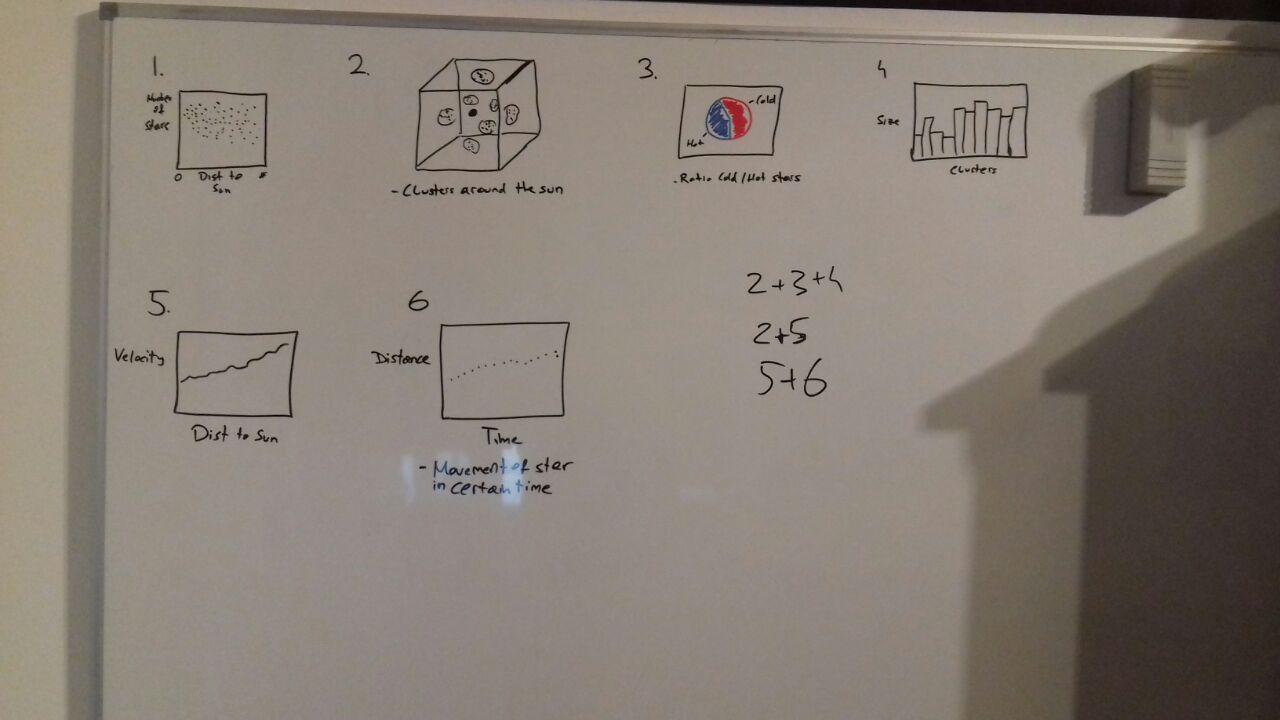 1.
Number
of
stars
0 Dist to
Sun
2.
- Clusters around the sun
3.
- Cold
Hot
- Ratio Cold/Hot stars
4
Size
Clusters
5.
Velocity
Dist to Sun
6
Distance
Time
- Movement of star
in certain time
2+3+4
2+5
5+6